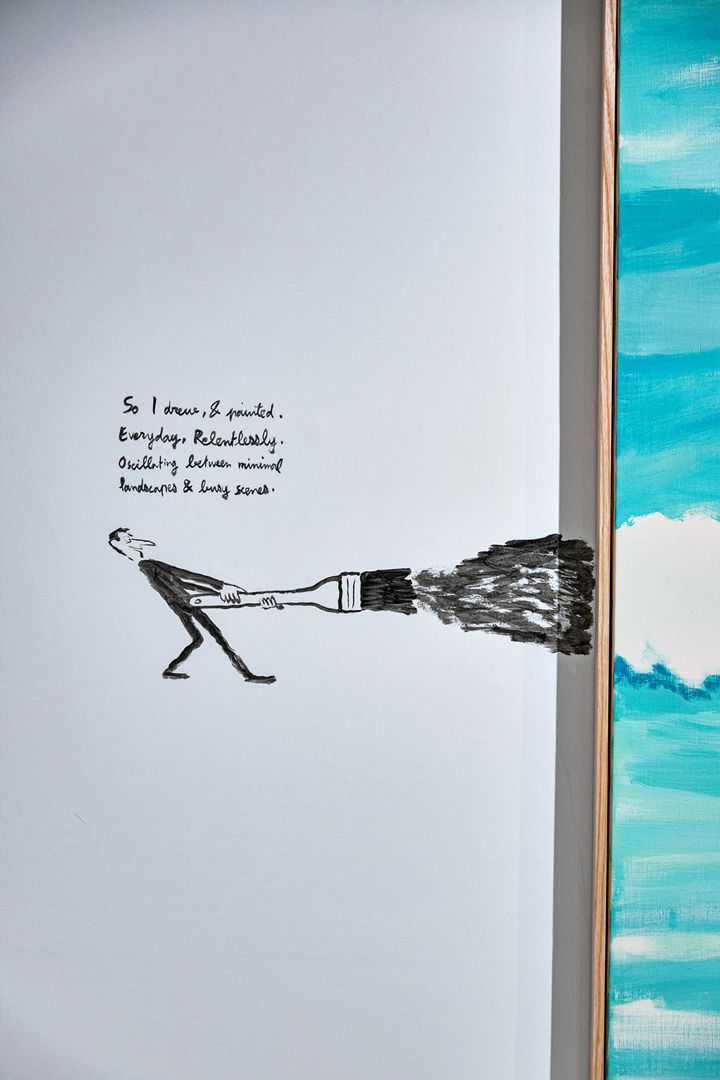 So I drew, & painted.
Everyday, Relentlessly.
Oscillating between minimal
landscapes & busy scenes.